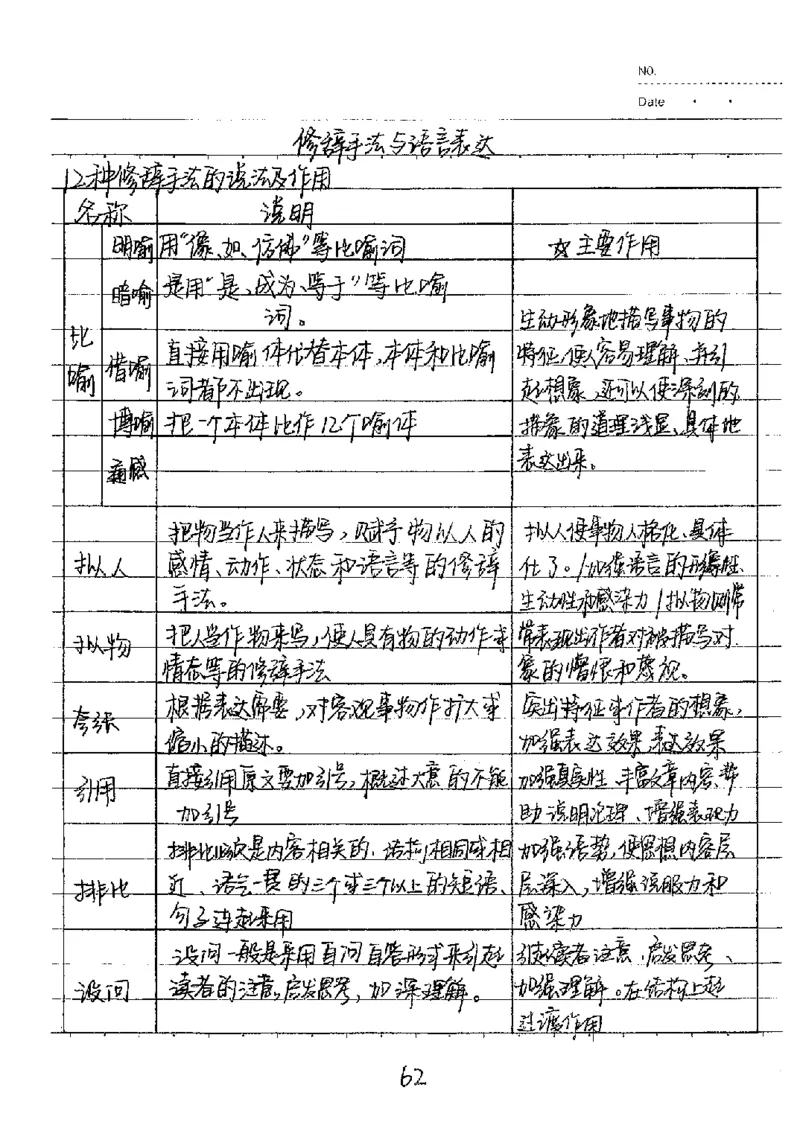 NO.
Date
修辞手法与语言表达
12种修辞手法的说法及作用
名称 说明
明喻 用“像、如、仿佛”等比喻词 ☆主要作用
暗喻 是用“是、成为、等于”等比喻
词。
比喻
借喻 直接用喻体代替本体,本体和比喻
词都不出现。
博喻 把一个本体比作12个喻体
通感
生动形象地描写事物的
特征,使人容易理解、并引
起想象,还可以使深刻的
抽象的道理浅显、具体地
表达出来。
拟人 把物当作人来描写,赋予物以人的
感情、动作、状态和语言等的修辞
手法。
拟人使事物人格化、具体
化了。/加强语言的形象性、
生动性和感染力/拟物则常
拟物 把人当作物来写,使人具有物的动作或
情态等的修辞手法
常表现出作者对被描写对
象的憎恨和蔑视。
夸张 根据表达需要,对客观事物作扩大或
缩小的描述。
突出特征或作者的想象,
加强表达效果 表达效果
引用 直接引用原文要加引号,概述大意的不能
加引号
加强真实性、丰富文章内容、帮
助说明论理、增强表现力
排比 排比应是内容相关的、语折相同或相
近、语气一贯的三个或三个以上的短语、
句子连起来用
加强语势,使思想内容层
层深入,增强说服力和
感染力
设问 设问一般是采用自问自答形式来引起
读者的注意,启发思考,加深理解。
引起读者注意,启发思考、
加强理解。在结构上起
过渡作用
62